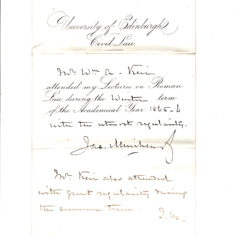 University of Edinburgh
Civil Law
Mr Wm A. Keir
attended my Lectures on Roman
Law during the Winter term
of the Academical Year 1885-6
with the utmost regularity.
Jas. Muirhead
Mr Keir also attended
with great regularity during
the summer term. J.M.